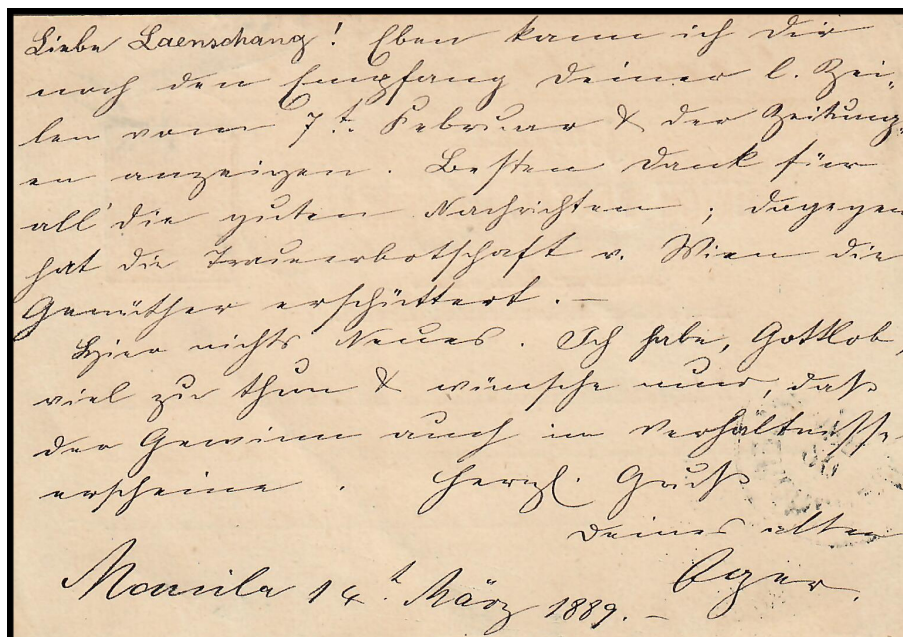 Liebe Laenschang! Eben kann ich Dir
noch den Empfang Deiner l. Zei-
len vom 7t. Februar & der Zeitung-
en anzeigen. Besten Dank für
all' die guten Nachrichten; dagegen
hat die Trauerbotschaft v. Wien die
Gemüther erschüttert. —
Hier nichts Neues. Ich habe, Gottlob,
viel zu thun & wünsche nur, daß
der Gewinn auch im Verhältnisse
erscheine. Herzl. Gruß
Deines alten
Manila 14t. März 1889. —